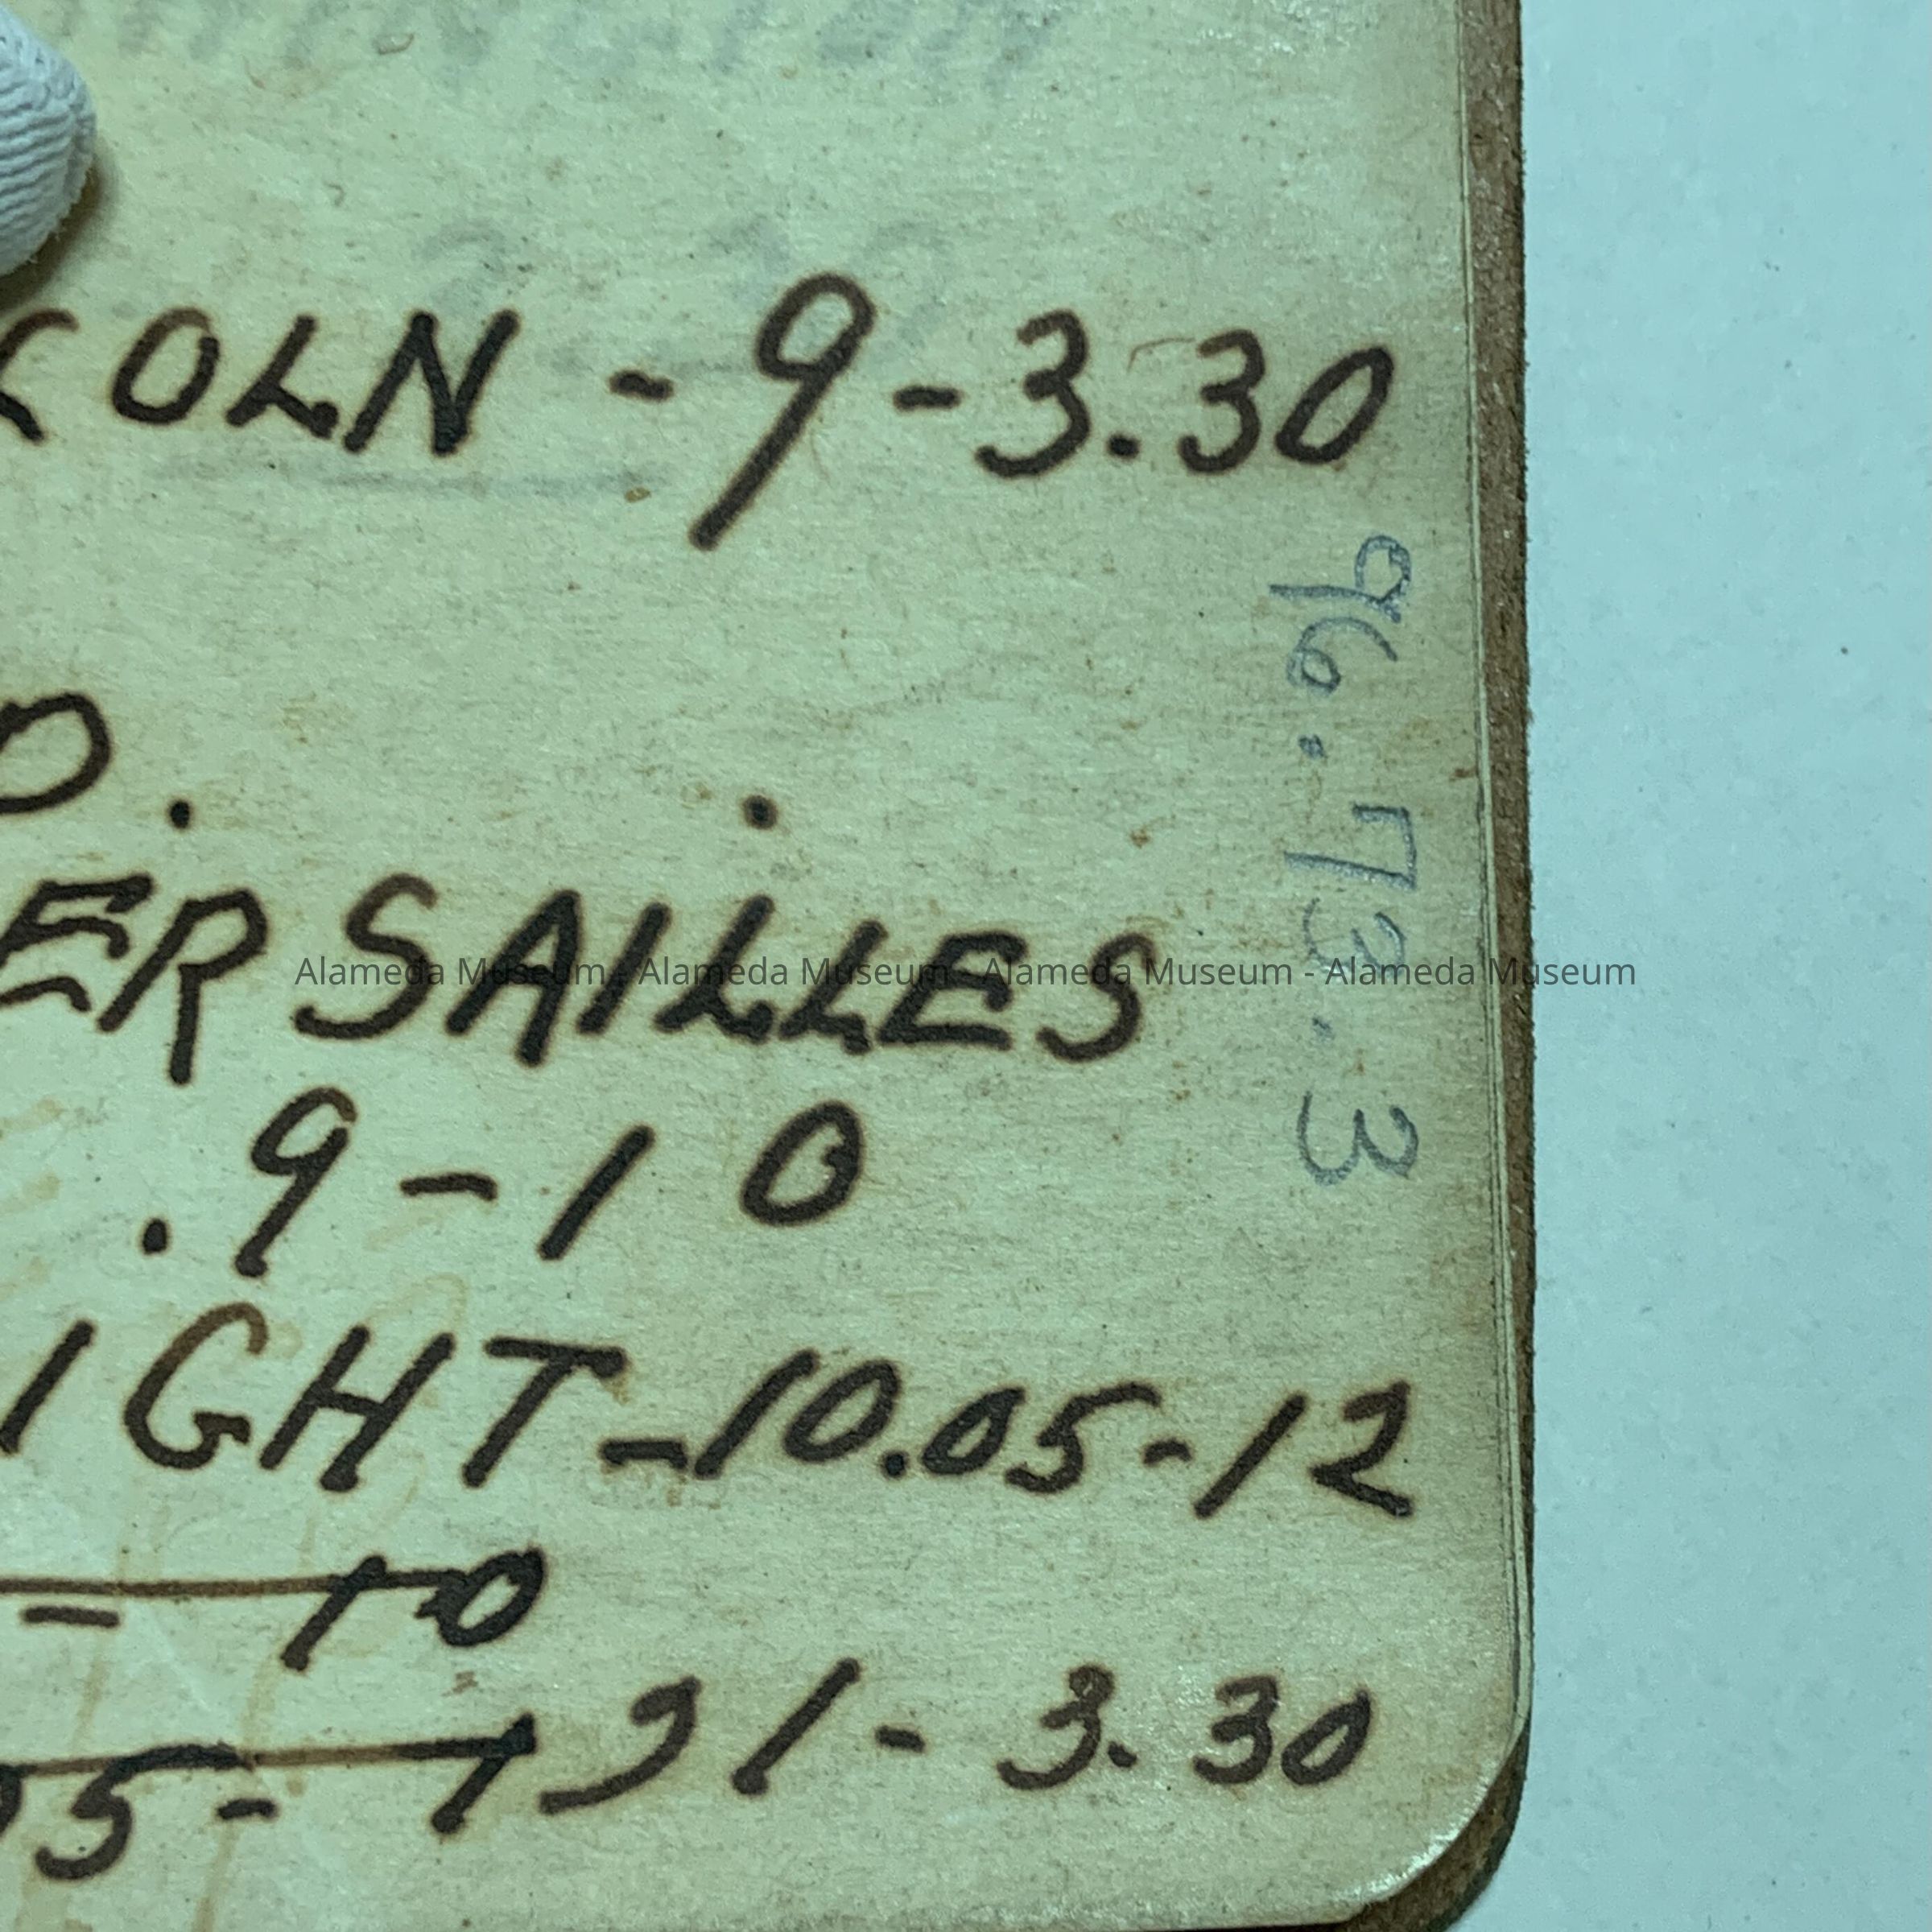 COLN - 9 - 3.30
96.73.3
D. .
ERSAILLES
Alameda Museum - Alameda Museum - Alameda Museum - Alameda Museum
. 9 - 10
IGHT - 10.05 - 12
- 10
05 - 1 1 - 3.30